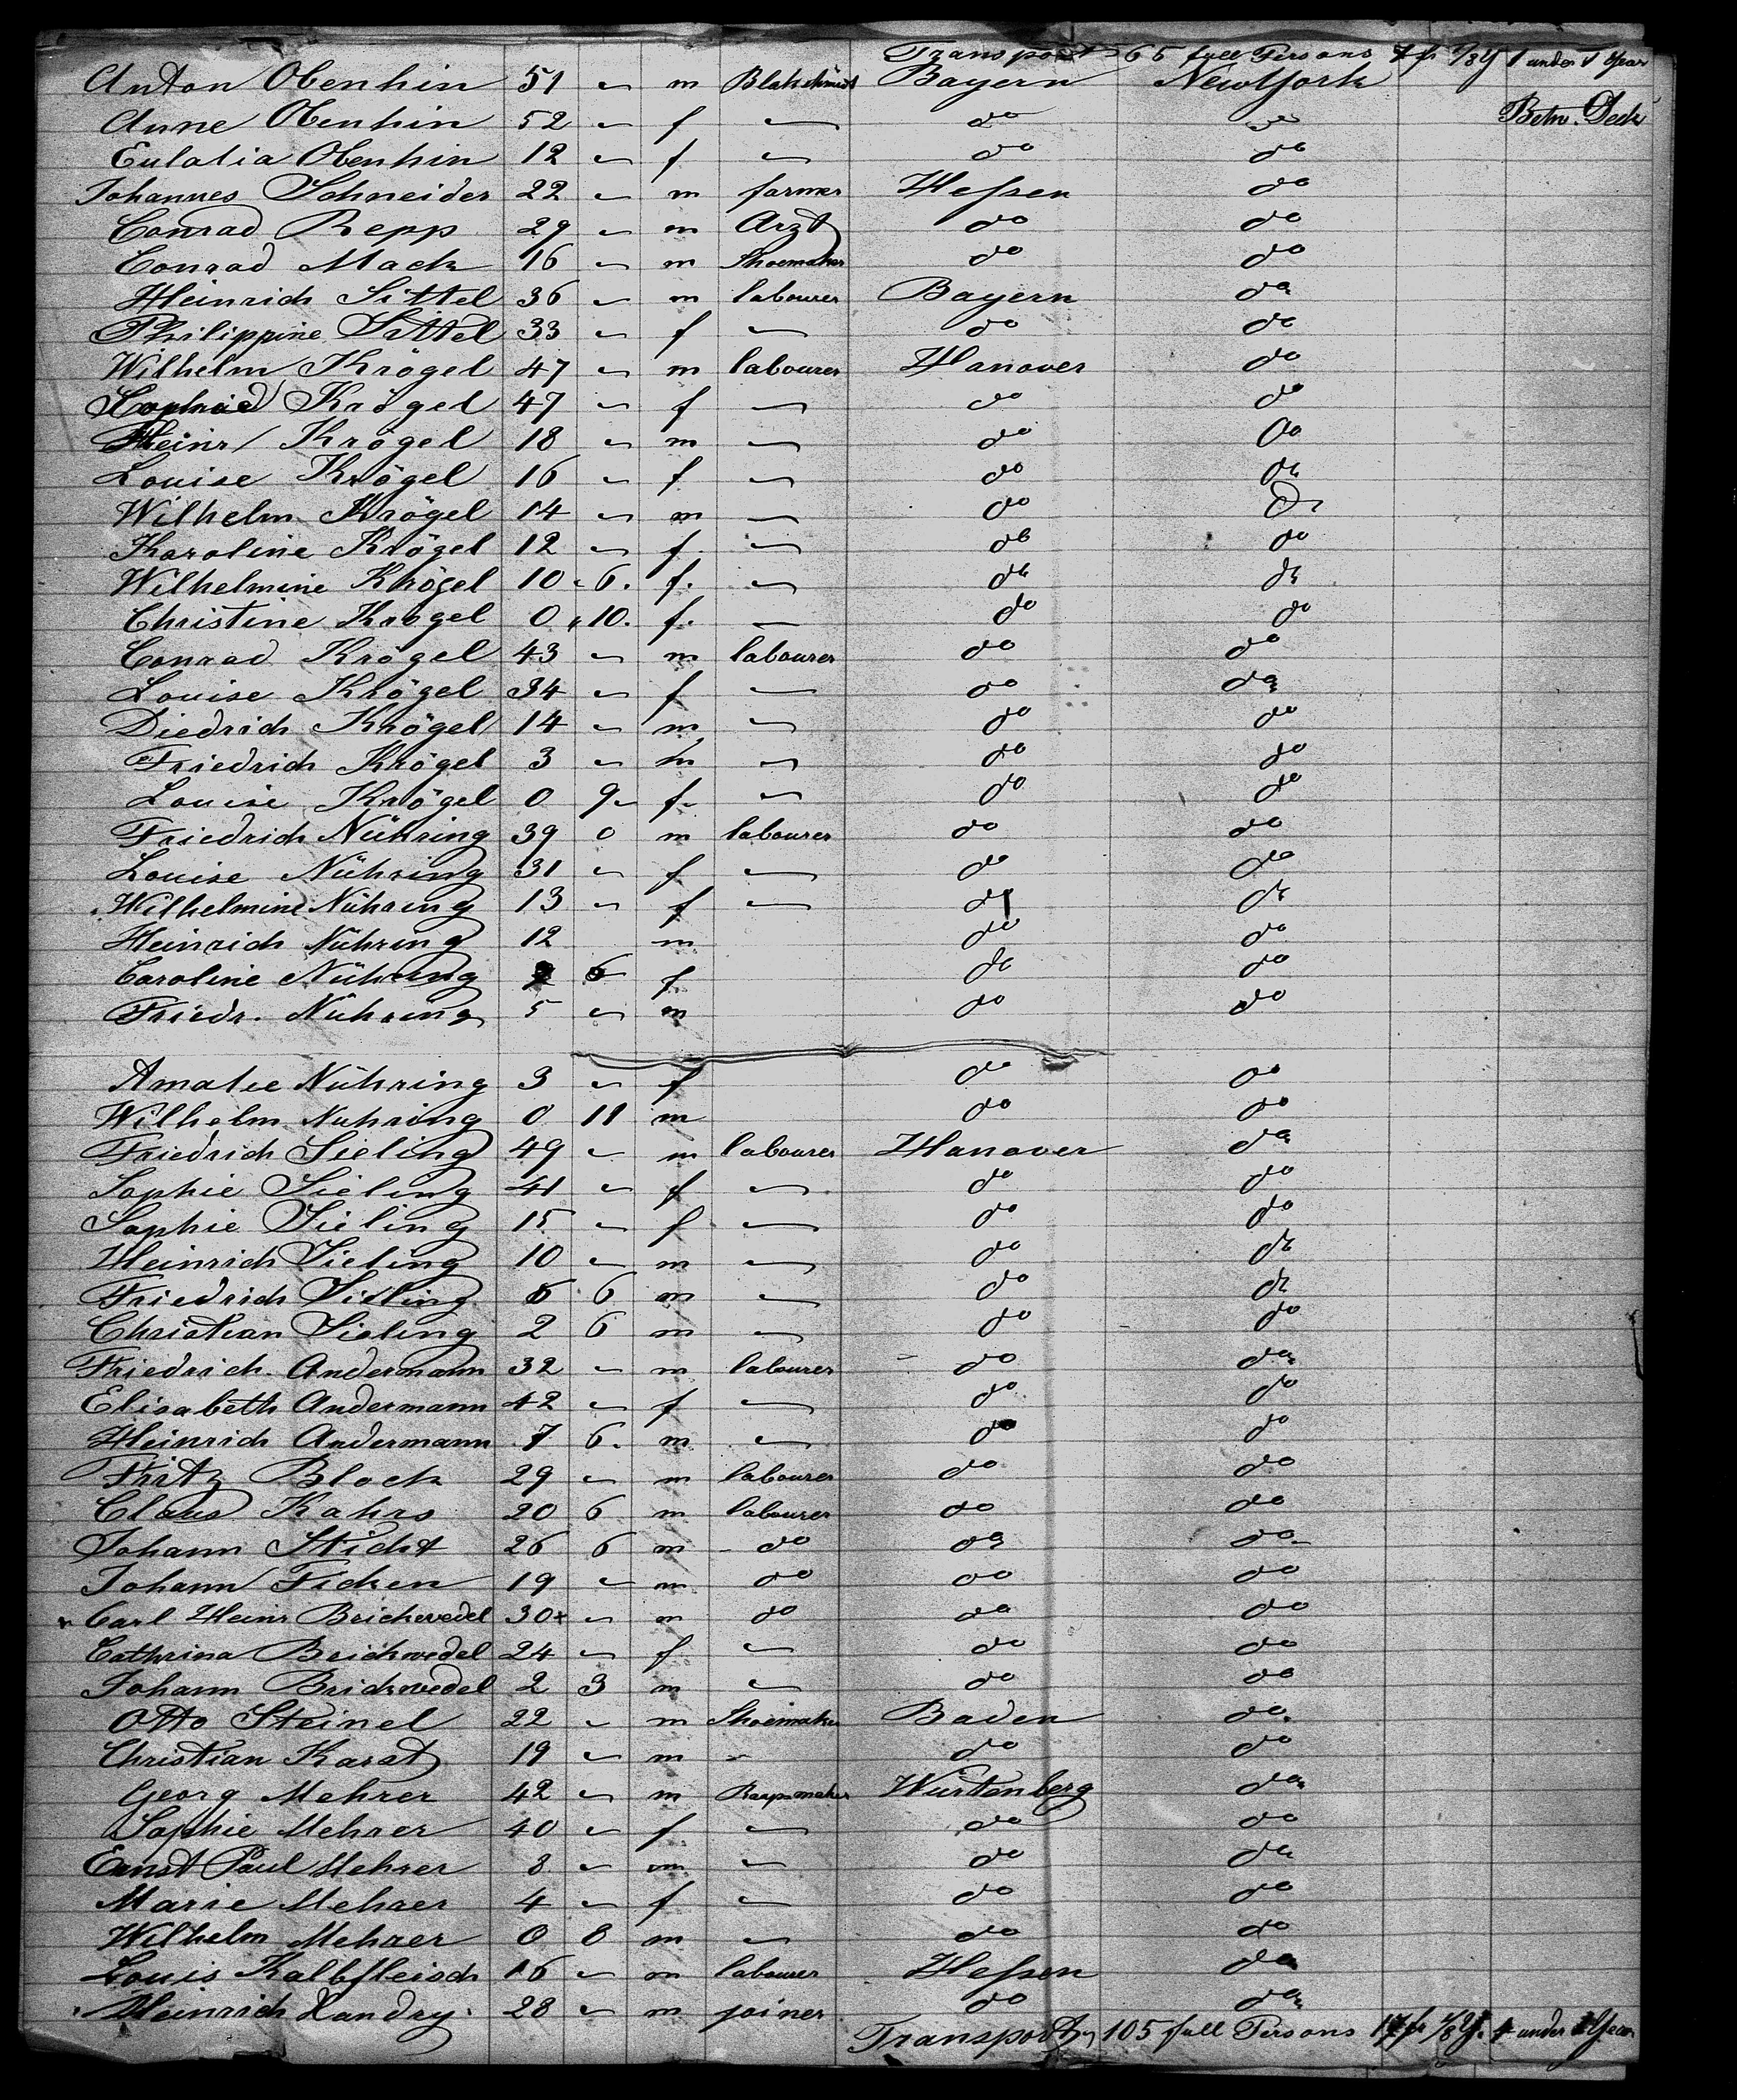 Transport 65 full Persons 7 fr 1/8 y 1 under 1 Year
Anton Obenhin 51 " m Blakschmidt Bayern New York
Betw. Deck
Anne Obenhin 52 " f — do do
Eulalia Obenhin 12 " f — do do
Johannes Schneider 22 " m farmer Hessen do
Conrad Repp 29 " m Arzt do do
Conrad Mack 16 " m Shoemaker do do
Heinrich Sittel 36 " m labourer Bayern do
Philippine Sittel 33 " f — do do
Wilhelm Krögel 47 " m labourer Hanover do
Sophie Krögel 47 " f — do do
Heinr Krögel 18 " m — do do
Louise Krögel 16 " f — do do
Wilhelm Krögel 14 " m — do do
Karoline Krögel 12 " f — do do
Wilhelmine Krögel 10 6 f — do do
Christine Krögel 0 10 f — do do
Conrad Krögel 43 " m labourer do do
Louise Krögel 34 " f — do do
Diedrich Krögel 14 " m — do do
Friedrich Krögel 3 " m — do do
Louise Krögel 0 9 f — do do
Friedrich Nühring 39 0 m labourer do do
Louise Nühring 31 " f — do do
Wilhelmine Nühring 13 " f — do do
Heinrich Nühring 12 m do do
Caroline Nühring 6 f do do
Friedr. Nühring 5 " m do do
Amalie Nühring 3 " f do do
Wilhelm Nuhring 0 11 m do do
Friedrich Sieling 49 " m labourer Hanover do
Sophie Sieling 41 " f — do do
Sophie Sieling 15 " f — do do
Heinrich Sieling 10 " m — do do
Friedrich Sieling 6 m — do do
Christian Sieling 2 6 m — do do
Friedrich Andermann 32 " m labourer do do
Elisabeth Andermann 42 " f — do do
Heinrich Andermann 7 6 m — do do
Fritz Block 29 " m labourer do do
Claus Kahrs 20 6 m labourer do do
Johann Sticht 26 6 m do do do
Johann Ficken 19 " m do do do
Carl Heinr Brickwedel 30 " m do do do
Cathrina Brickwedel 24 " f — do do
Johann Brickwedel 2 3 m — do do
Otto Steinel 22 " m Shoemaker Baden do
Christian Karst 19 " m " do do
Georg Mehrer 42 " m Würtenberg do
Sophie Mehrer 40 " f — do do
Ernst Paul Mehrer 8 " m — do do
Marie Mehrer 4 " f do do
Wilhelm Mehrer 0 8 m — do do
Louis Kalbfleisch 16 " m labourer Hessen do
Heinrich Landry 28 " m joiner do do
Transport 105 full Persons 17 fr 1/8 y. 4 under 1 Year